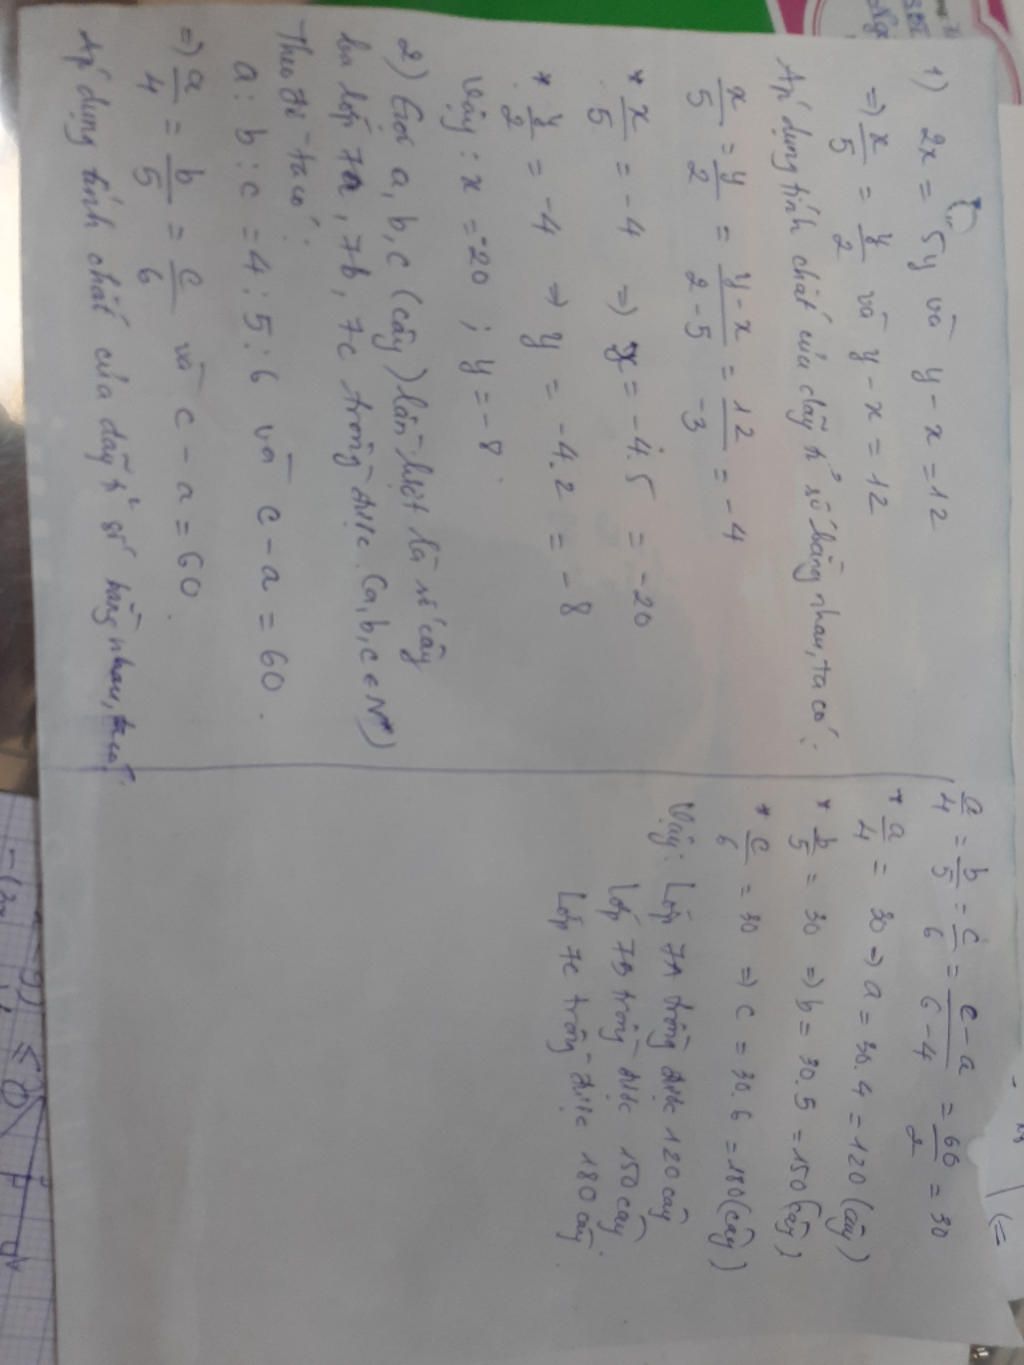 1) 2x = 5y và y - x = 12
⇒ x/5 = y/2 và y - x = 12
Áp dụng tính chất của dãy tỉ số bằng nhau, ta có:
x/5 = y/2 = y-x/2-5 = 12/-3 = -4
* x/5 = -4 ⇒ x = -4.5 = -20
* y/2 = -4 ⇒ y = -4.2 = -8
Vậy: x = -20 ; y = -8.
2) Gọi a, b, c (cây) lần lượt là số cây
ba lớp 7a, 7b, 7c trồng được. (a,b,c ∈ N*)
Theo đề ta có:
a : b : c = 4 : 5 : 6 và c - a = 60.
⇒ a/4 = b/5 = c/6 và c - a = 60.
Áp dụng tính chất của dãy tỉ số bằng nhau, ta có:
a/4 = b/5 = c/6 = c-a/6-4 = 60/2 = 30
* a/4 = 30 ⇒ a = 30.4 = 120 (cây)
* b/5 = 30 ⇒ b = 30.5 = 150 (cây)
* c/6 = 30 ⇒ c = 30.6 = 180 (cây)
Vậy: Lớp 7A trồng được 120 cây
Lớp 7B trồng được 150 cây.
Lớp 7C trồng được 180 cây.